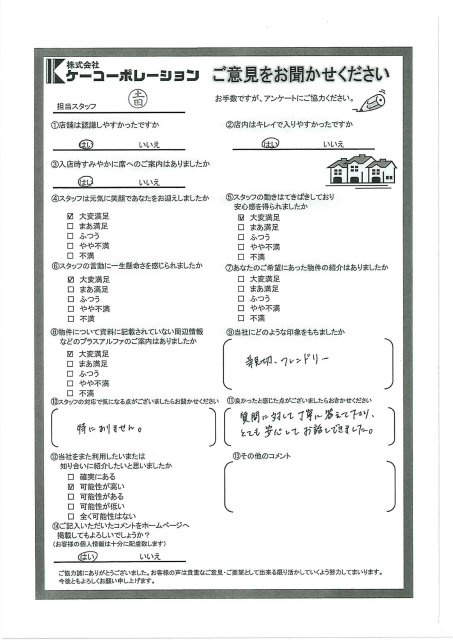 株式会社
ケーコーポレーション
ご意見をお聞かせください
担当スタッフ
お手数ですが、アンケートにご協力ください。
①店舗は認識しやすかったですか
はい いいえ
②店内はキレイで入りやすかったですか
はい いいえ
③入店時すみやかに席へのご案内はありましたか
はい いいえ
④スタッフは元気に笑顔であなたをお迎えしましたか
☑ 大変満足
□ まあ満足
□ ふつう
□ やや不満
□ 不満
⑤スタッフの動きはてきぱきしており
安心感を得られましたか
☑ 大変満足
□ まあ満足
□ ふつう
□ やや不満
□ 不満
⑥スタッフの言動に一生懸命さを感じられましたか
☑ 大変満足
□ まあ満足
□ ふつう
□ やや不満
□ 不満
⑦あなたのご希望にあった物件の紹介はありましたか
□ 大変満足
□ まあ満足
□ ふつう
□ やや不満
□ 不満
⑧物件について資料に記載されていない周辺情報
などのプラスアルファのご案内はありましたか
☑ 大変満足
□ まあ満足
□ ふつう
□ やや不満
□ 不満
⑨当社にどのような印象をもちましたか
親切、フレンドリー
⑩スタッフの対応で気になる点がございましたらお聞かせください
特にありません。
⑪良かったと感じた点がございましたらおきかせください
質問に対して丁寧に答えて下さり、
とても安心してお話しできました。
⑫当社をまた利用したいまたは
知り合いに紹介したいと思いましたか
□ 確実にある
☑ 可能性が高い
□ 可能性がある
□ 可能性が低い
□ 全く可能性はない
⑬その他のコメント
⑭ご記入いただいたコメントをホームページへ
掲載してもよろしいでしょうか?
(お客様の個人情報は十分に配慮致します)
はい いいえ
ご協力誠にありがとうございました。お客様の声は貴重なご意見・ご要望として出来る限り活かしていくよう努力してまいります。
今後ともよろしくお願い申し上げます。